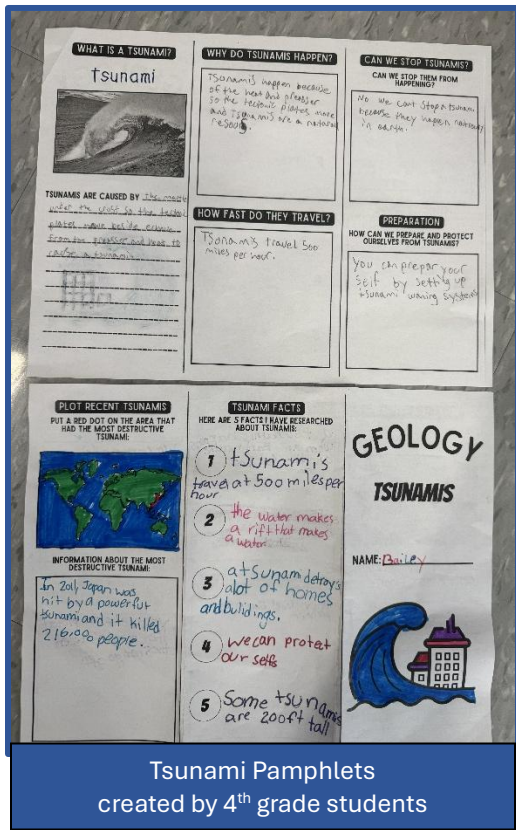 WHAT IS A TSUNAMI?
tsunami
TSUNAMIS ARE CAUSED BY the
under the crust so the
plates move beside
from the pressure and heat to
a tsunami.
WHY DO TSUNAMIS HAPPEN?
Tsunamis happen because
of the heat and
so the tectonic plates move
and Tsunamis are a natural
HOW FAST DO THEY TRAVEL?
Tsunamis travel 500
miles per hour.
CAN WE STOP TSUNAMIS?
CAN WE STOP THEM FROM
HAPPENING?
No we cant stop a tsunami
because they happen
in earth.
PREPARATION
HOW CAN WE PREPARE AND PROTECT
OURSELVES FROM TSUNAMIS?
You can prepar your
self by setting up
tsunami waning systems
PLOT RECENT TSUNAMIS
PUT A RED DOT ON THE AREA THAT
HAD THE MOST DESTRUCTIVE
TSUNAMI:
INFORMATION ABOUT THE MOST
DESTRUCTIVE TSUNAMI:
In 2011, Japan was
hit by a powerful
tsunami and it killed
216,000 people.
TSUNAMI FACTS
HERE ARE 5 FACTS I HAVE RESEARCHED
ABOUT TSUNAMIS:
1 tsunamis
travel at 500 miles per
hour
2 the water makes
a rift that makes
a water.
3 a tsunami detroys
alot of homes
and bulidings.
4 we can protect
our selfs
5 Some tsunamis
are 200ft tall
GEOLOGY
TSUNAMIS
NAME: Bailey
Tsunami Pamphlets
created by 4th grade students